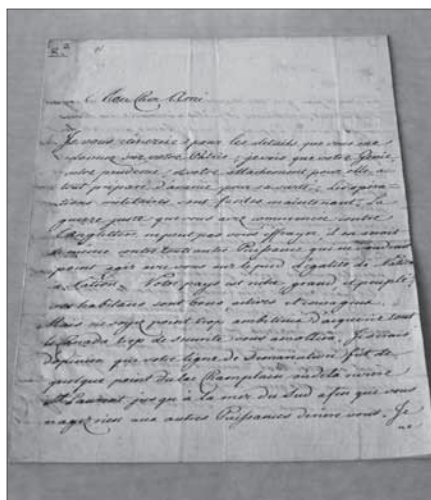 Mon Cher Ami
Je vous remercie pour les détails que vous me
donnez sur votre Patrie, je vois que votre Génie,
votre prudence, & votre attachement pour elle, a
tout préparé d'avance pour sa sureté. Les opera=
tions militaires sont faciles maintenant. La
guerre juste que vous avez commencée contre
l'angleterre ne peut pas vous effrayer, il en seroit
de même contre toute autre Puissance qui ne voudroit
point agir avec vous sur le pied d'égalité de Nation
à Nation. Votre pays est riche, grand, et peuplé;
vos habitans sont bons, actives et courageux.
Mais ne soyez point trop ambitieux d'acquerir tout
le Canada trop de sureté vous amollira. Je serais
d'opinion que votre ligne de Démarcation fut de
quelque point du lac Champlain au delà rivière
St. Laurent jusqu'à la mer du Sud afin que vous
n'ayez rien aux autres Puissances derrière vous. Je
ne